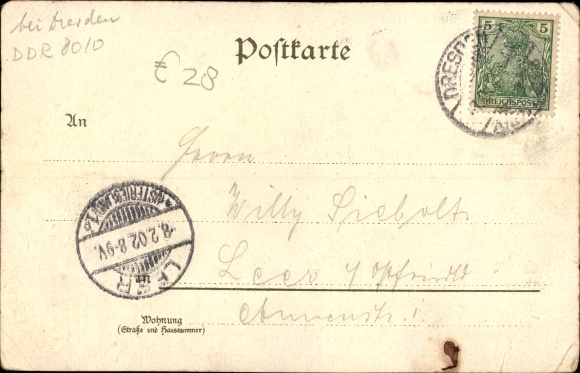 bei Dresden
DDR 8010
Postkarte
€ 28
5 5
REICHSPOST
DRESDEN
An
Herrn
Willy Siebolts
Leer
OSTFRIESLAND
8.2.02.8-9V.
LEER
Wohnung
(Straße und Hausnummer)